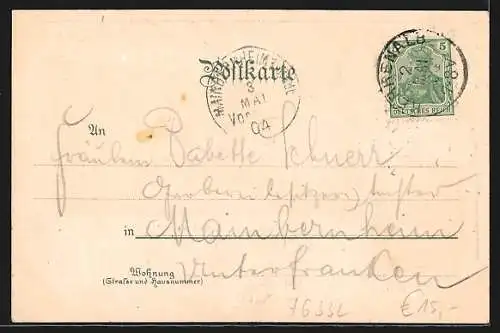 Postkarte
MAINBERNHEIM
3
MAI
Vor
04
HERRENALB
2
MAI
5
DEUTSCHES REICH
An
Fräulein Babette Schnerr
Gerbereibesitzers tochter
in Mainbernheim
Unterfranken
Wohnung
(Straße und Hausnummer)
76332
€ 15,-